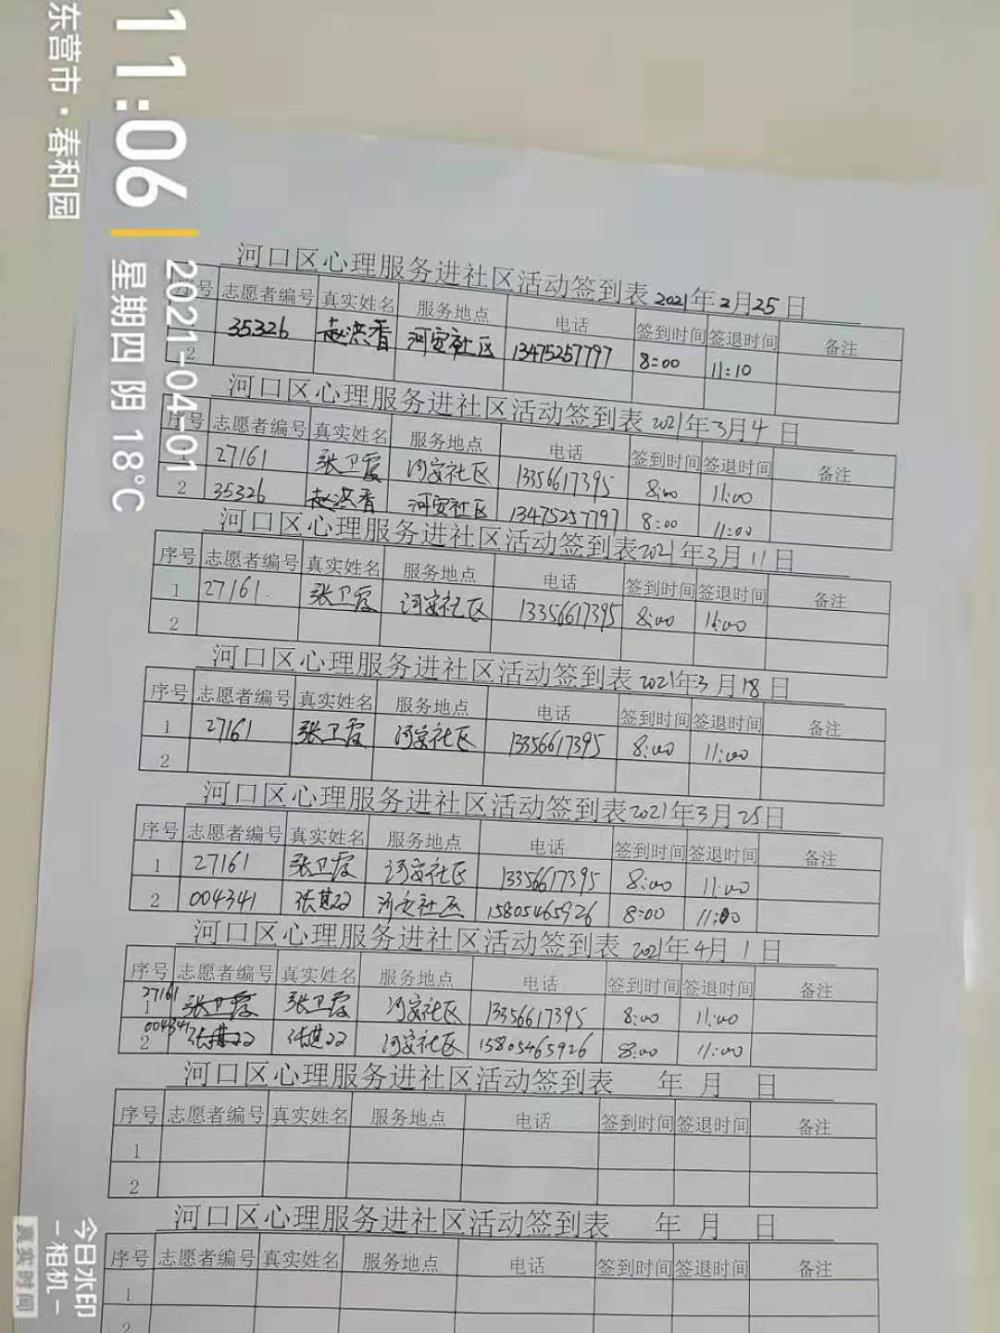 11:06
2021-04-01
星期四 阴 18℃
东营市·春和园
河口区心理服务进社区活动签到表2021年2月25日
序号 志愿者编号 真实姓名 服务地点 电话 签到时间 签退时间 备注
35326 赵洪香 河安社区 13475257797 8:00 11:10
2
河口区心理服务进社区活动签到表2021年3月4日
序号 志愿者编号 真实姓名 服务地点 电话 签到时间 签退时间 备注
1 27161 张卫霞 河安社区 13356617395 8:00 11:00
2 35326 赵洪香 河安社区 13475257797 8:00 11:00
河口区心理服务进社区活动签到表2021年3月11日
序号 志愿者编号 真实姓名 服务地点 电话 签到时间 签退时间 备注
1 27161 张卫霞 河安社区 13356617395 8:00 11:00
2
河口区心理服务进社区活动签到表2021年3月18日
序号 志愿者编号 真实姓名 服务地点 电话 签到时间 签退时间 备注
1 27161 张卫霞 河安社区 13356617395 8:00 11:00
2
河口区心理服务进社区活动签到表2021年3月25日
序号 志愿者编号 真实姓名 服务地点 电话 签到时间 签退时间 备注
1 27161 张卫霞 河安社区 13356617395 8:00 11:00
2 004341 河安社区 15805465926 8:00 11:00
河口区心理服务进社区活动签到表 2021年4月1日
序号 志愿者编号 真实姓名 服务地点 电话 签到时间 签退时间 备注
1 27161 张卫霞 张卫霞 河安社区 13356617395 8:00 11:00
2 004341 河安社区 15805465926 8:00 11:00
河口区心理服务进社区活动签到表 年 月 日
序号 志愿者编号 真实姓名 服务地点 电话 签到时间 签退时间 备注
1
2
河口区心理服务进社区活动签到表 年 月 日
序号 志愿者编号 真实姓名 服务地点 电话 签到时间 签退时间 备注
1
2
今日水印
-相机-
真实时间